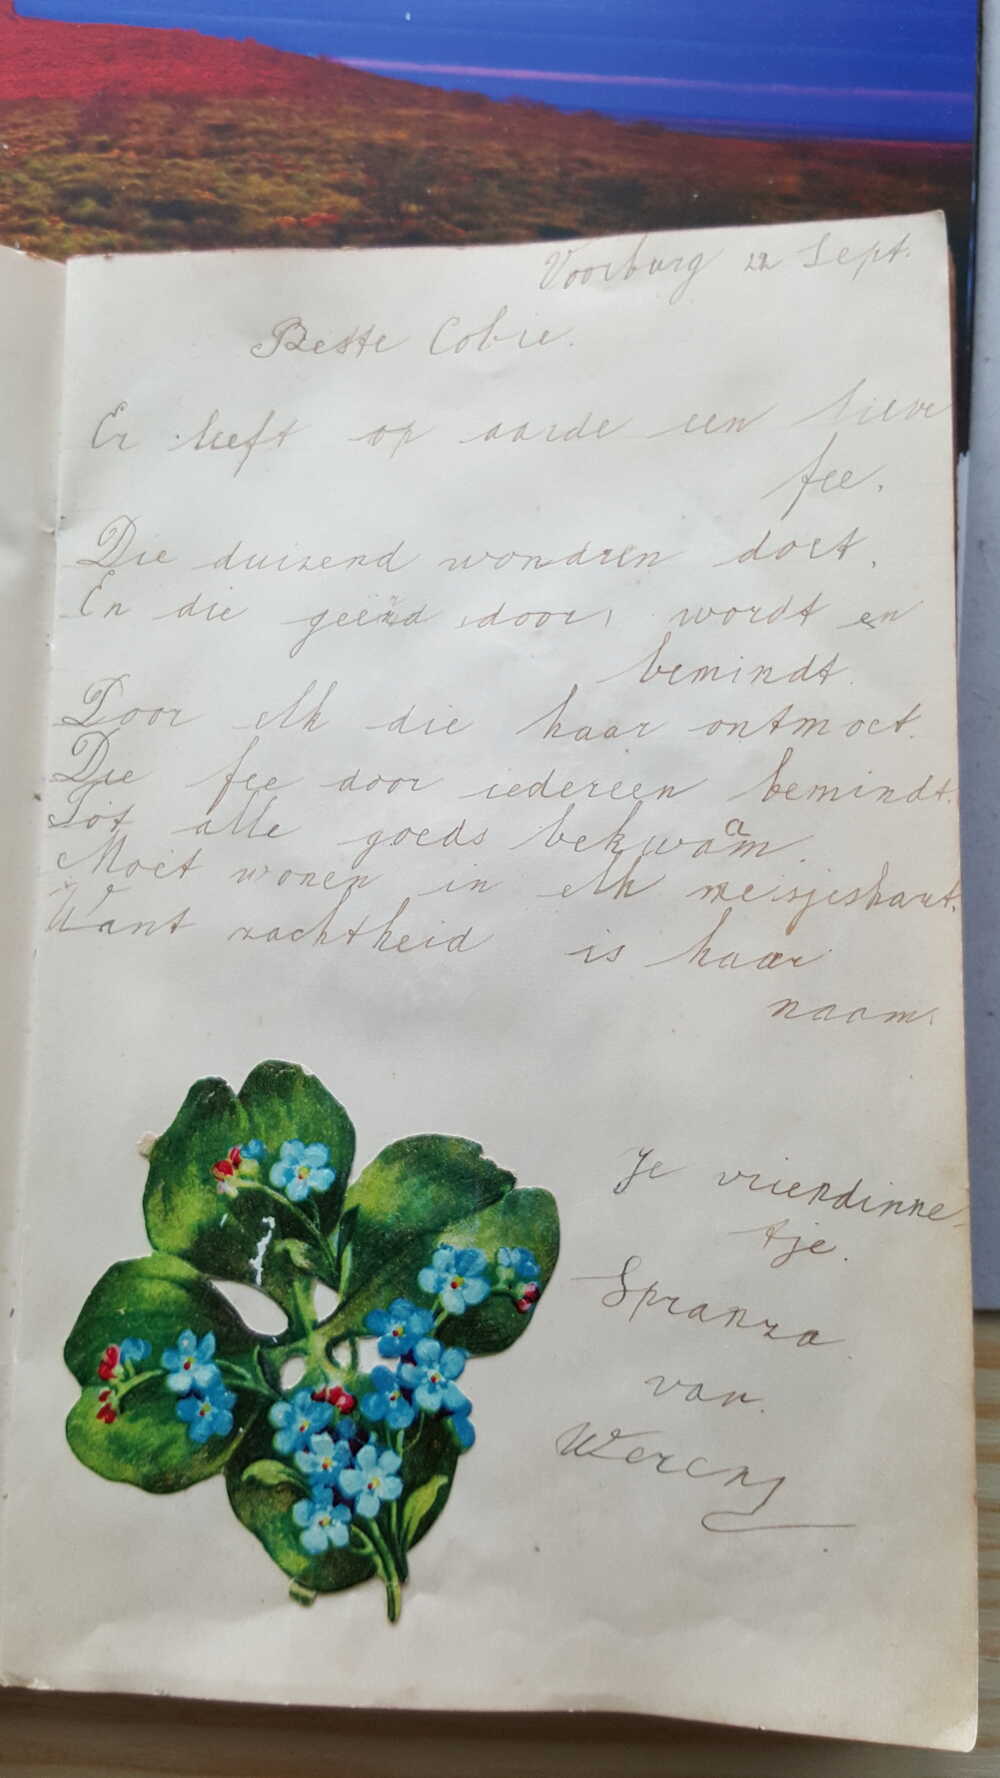 Voorburg 22 Sept.
Beste Cobie.
Er leeft op aarde een lieve
fee.
Die duizend wondren doet.
En die geëerd door wordt en
bemindt.
Door elk die haar ontmoet.
Die fee door iedereen bemindt.
Tot alle goeds bekwaam.
Moet wonen in elk meisjeshart.
Want zachtheid is haar
naam.
Je vriendinne-
tje.
Spranza
van